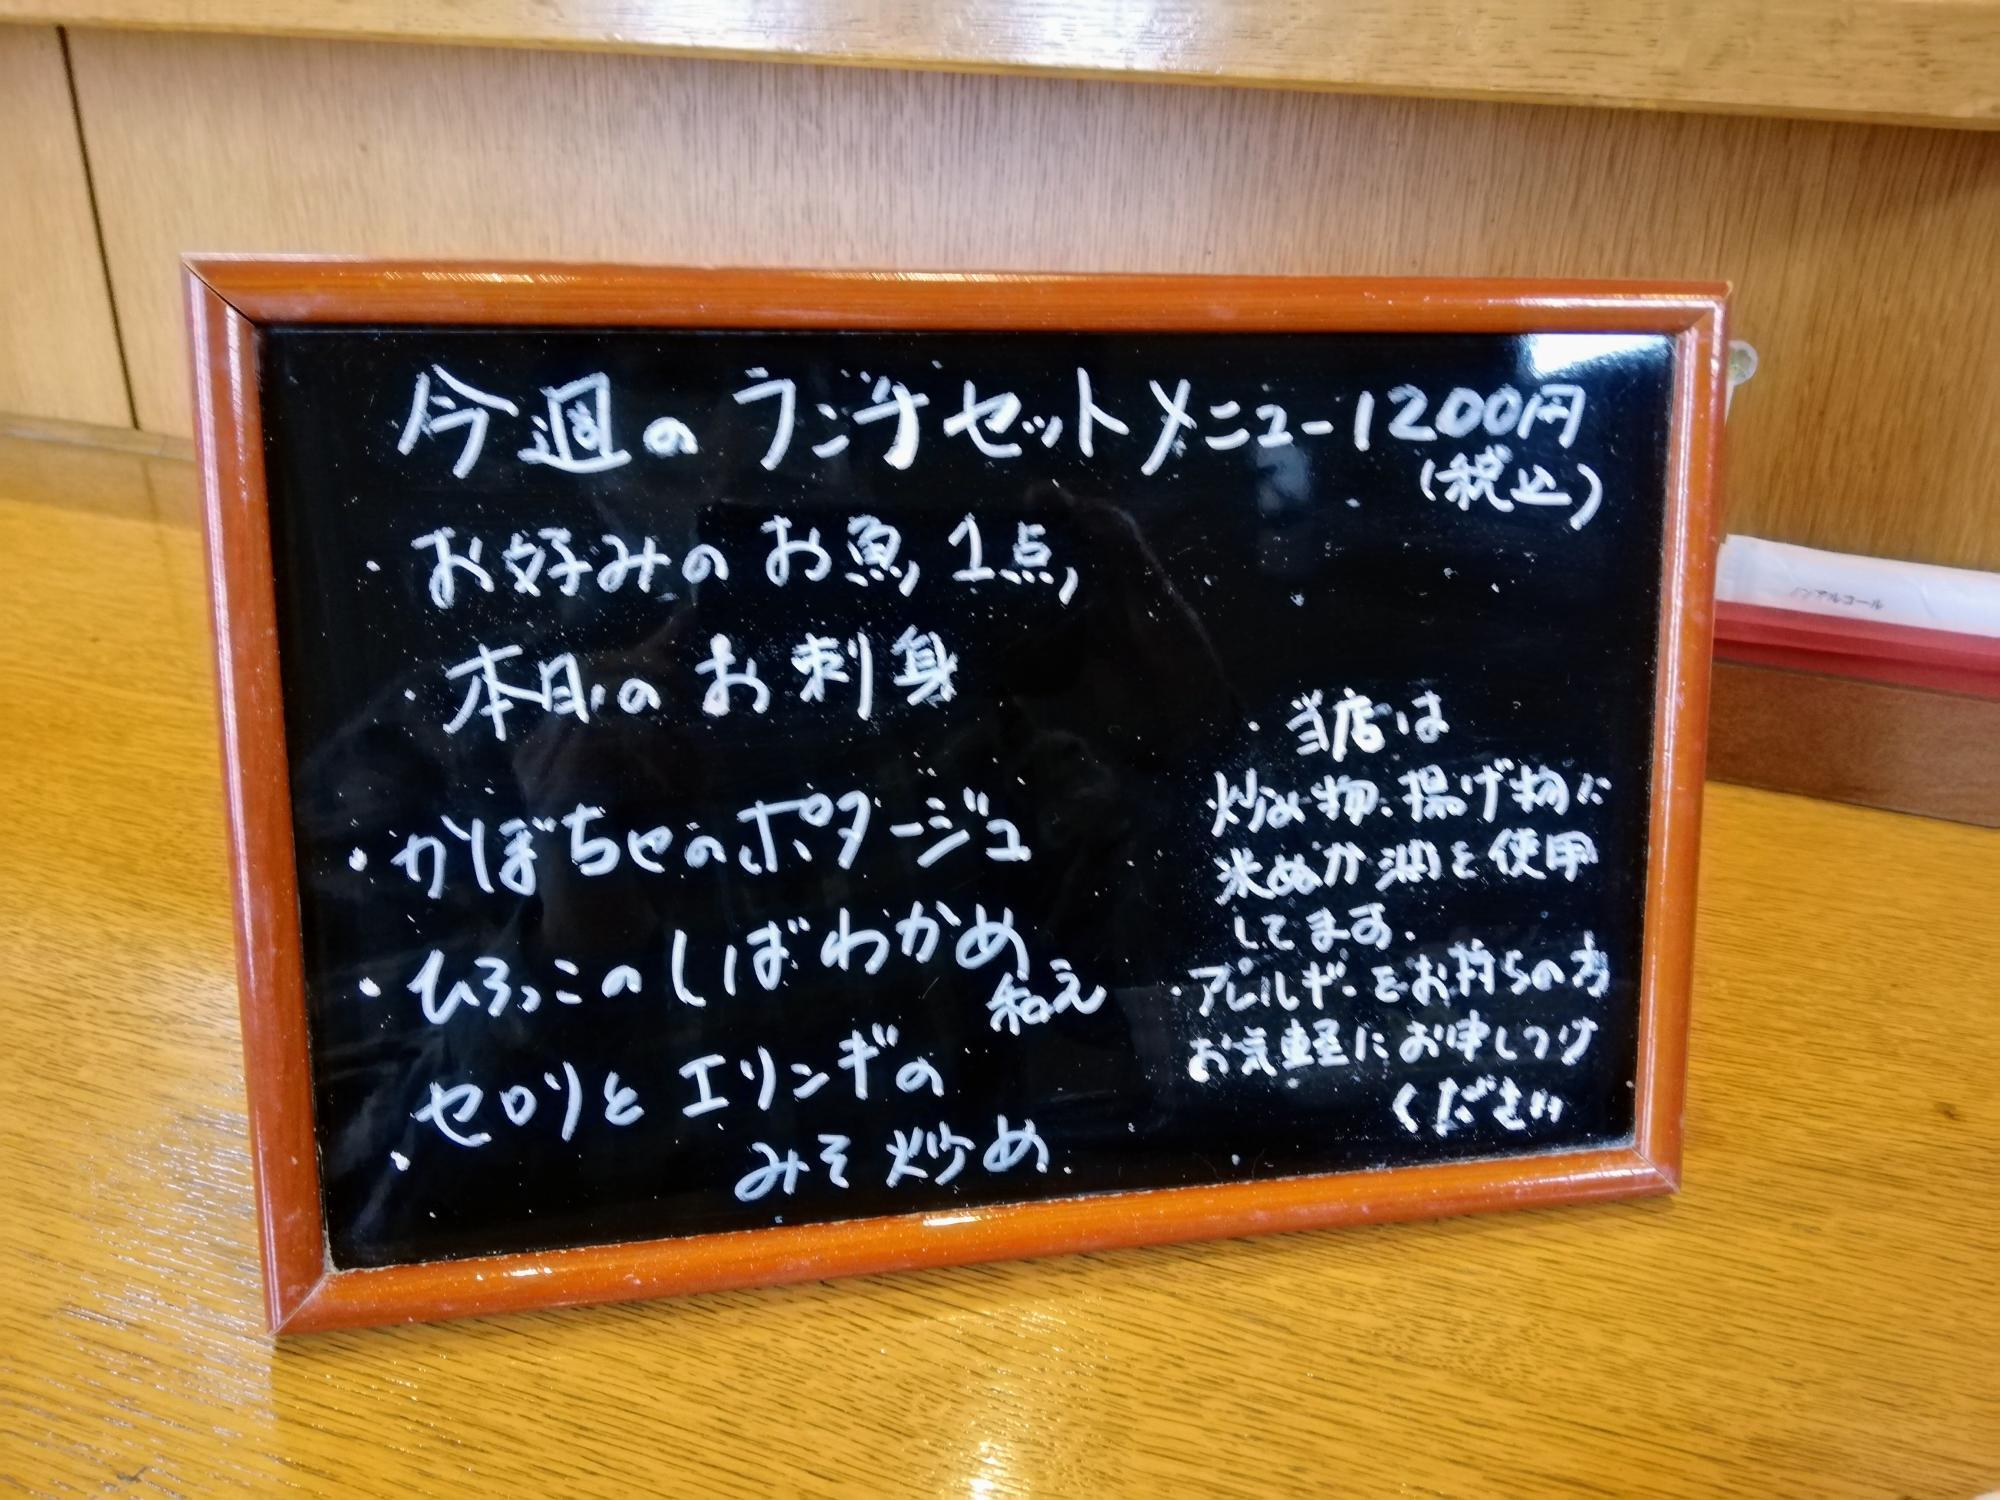 今週のランチセットメニュー1200円
(税込)
・お好みのお魚1点
・本日のお刺身
・かぼちゃのポタージュ
・ひろっこのしばわかめ
和え
・セロリとエリンギの
みそ炒め
・当店は
炒め物、揚げ物に
米ぬか油を使用
してます。
・アレルギーをお持ちの方
お気軽にお申しつけ
ください
アルコール